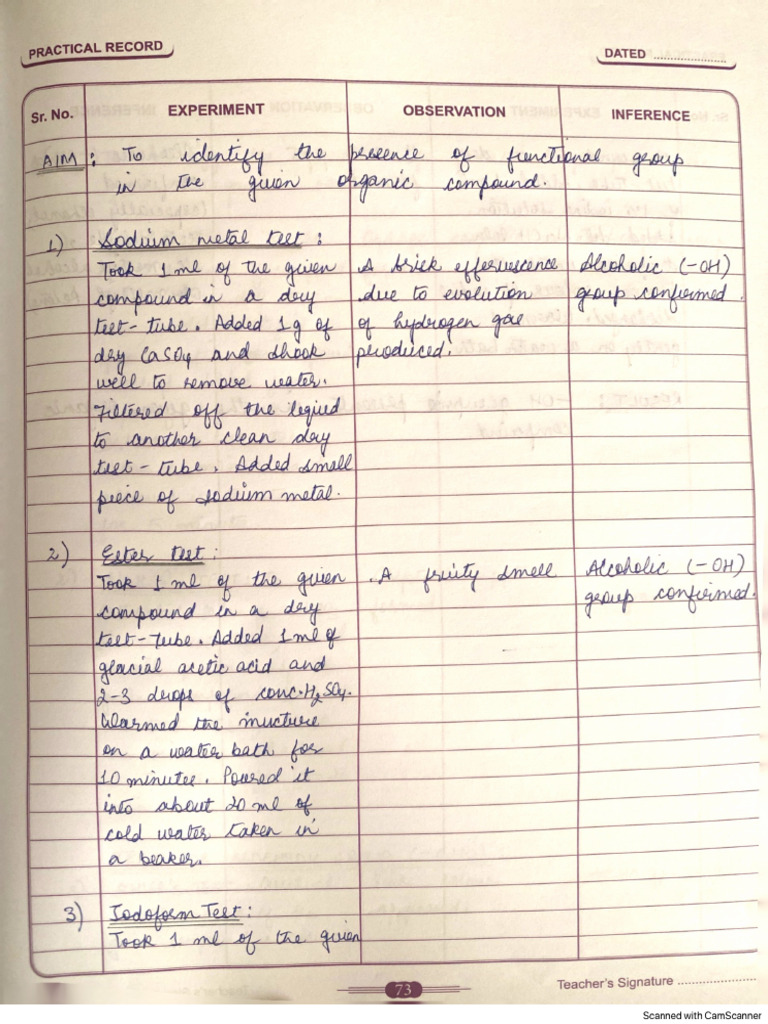 PRACTICAL RECORD
DATED ....................
Sr. No. EXPERIMENT OBSERVATION INFERENCE
AIM : To identify the presence of functional group
in the given organic compound.
1) Sodium metal test :
Took 1 ml of the given A brisk effervescence Alcoholic (-OH)
compound in a dry due to evolution group confirmed.
test-tube. Added 1g of of hydrogen gas
dry CaSO4 and shook produced.
well to remove water.
Filtered off the liquid
to another clean dry
test-tube. Added small
piece of sodium metal.
2) Ester test :
Took 1 ml of the given .A fruity smell Alcoholic (-OH)
compound in a dry group confirmed.
test-tube. Added 1 ml of
glacial acetic acid and
2-3 drops of conc. H2SO4.
Warmed the mixture
on a water bath for
10 minutes. Poured it
into about 20 ml of
cold water taken in
a beaker.
3) Iodoform Test :
Took 1 ml of the given
73
Teacher's Signature ....................
Scanned with CamScanner